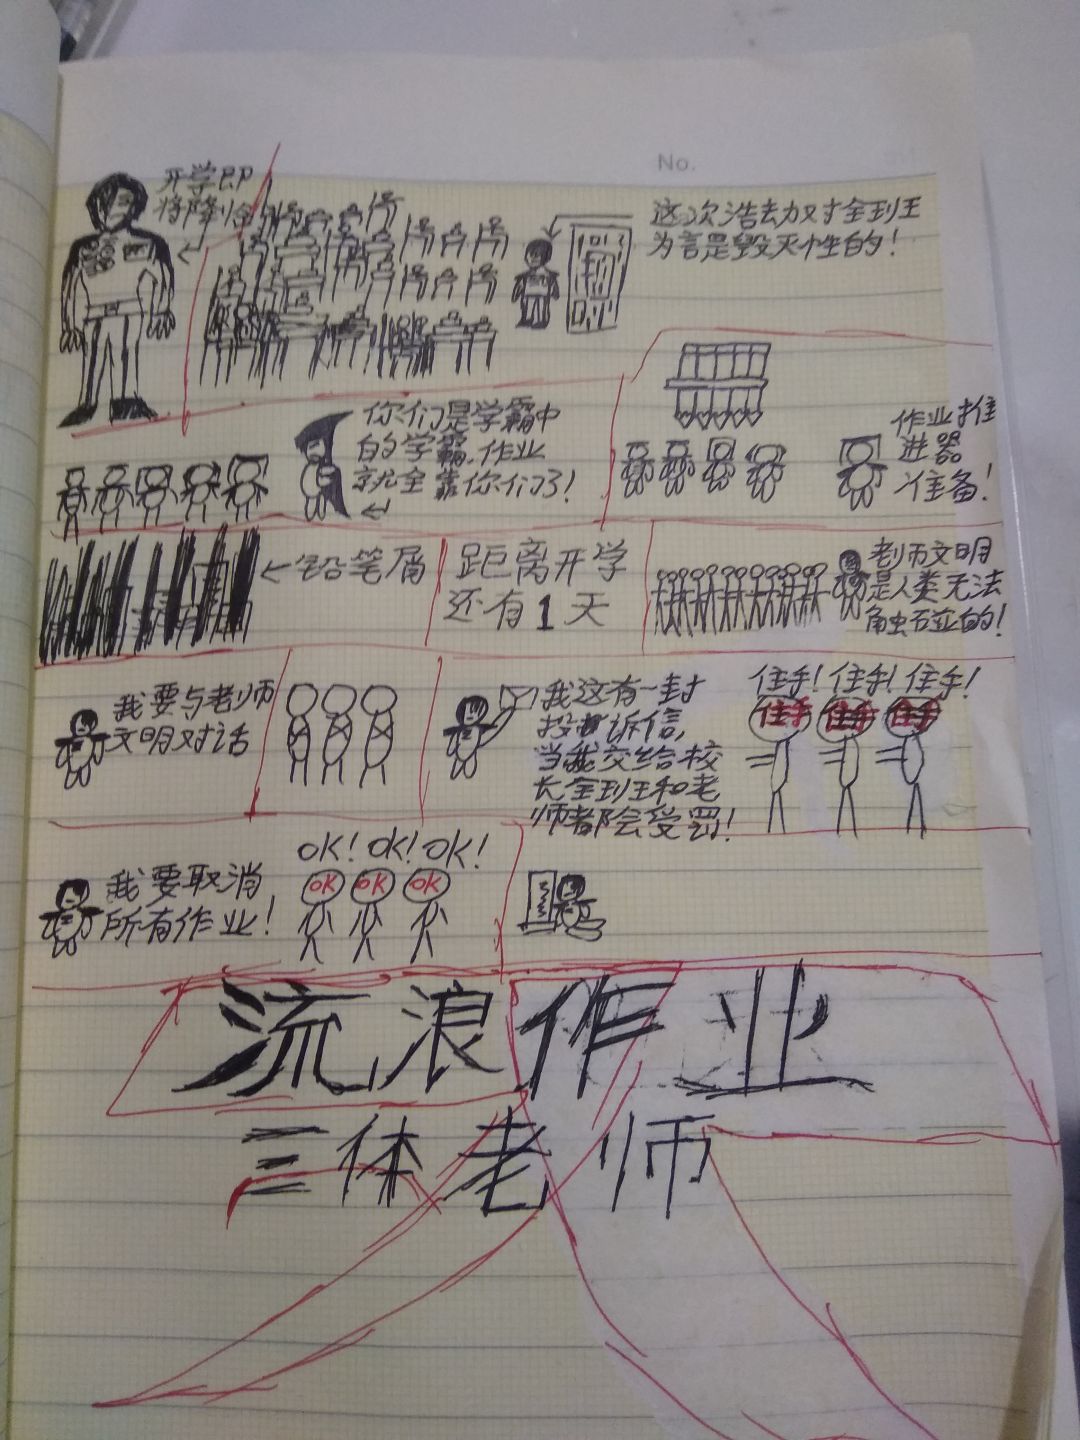 No.
开学即
将降临
这次浩劫对全到王
为言是毁灭性的!
你们是学霸中
的学霸,作业
就全靠你们了!
作业推
进器
准备!
铅笔屑
距离开学
还有1天
老师文明
是人类无法
触碰的!
我要与老师
文明对话
我这有一封
投诉信,
当我交给校
长全到王和老
师都会受罚!
住手!住手!住手!
住手 住手 住手
我要取消
所有作业!
OK!OK!OK!
OK OK OK
流浪作业
三体老师